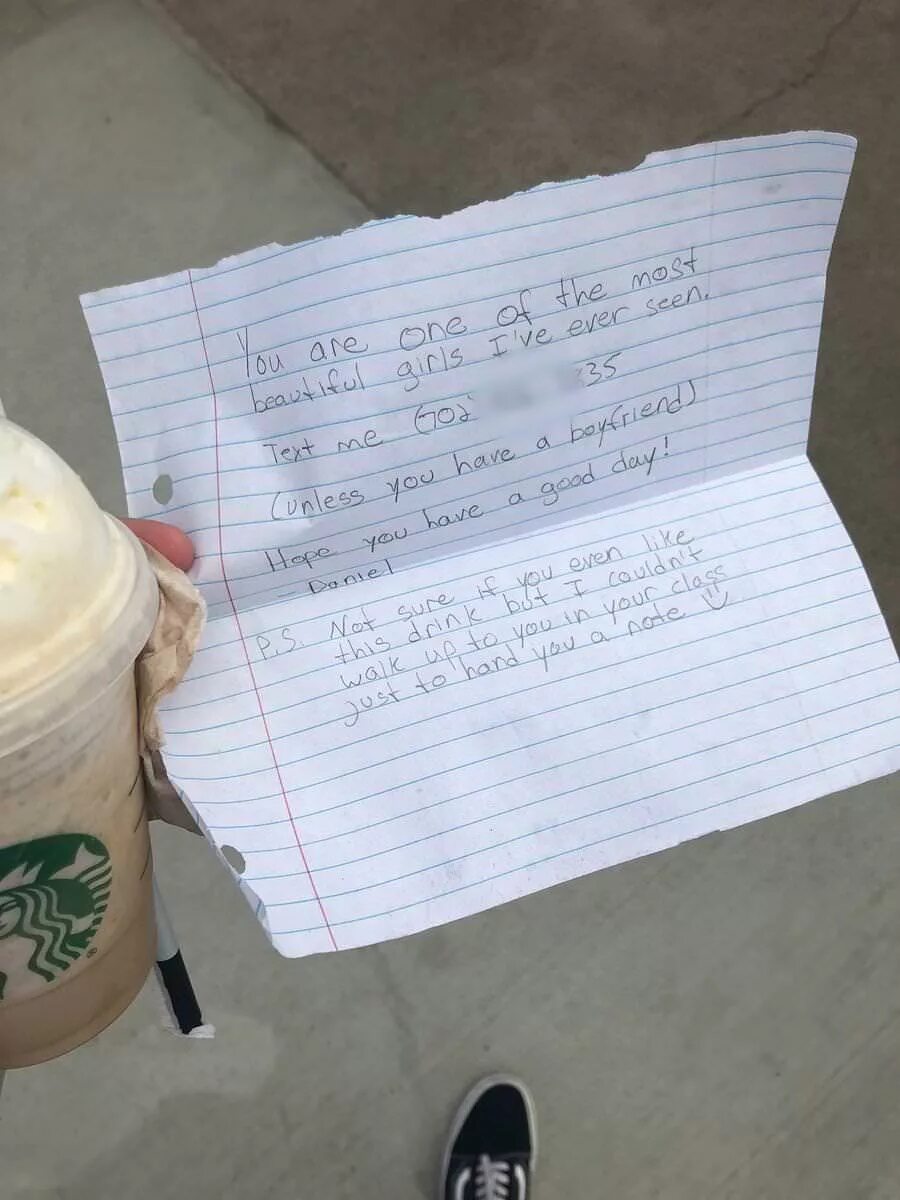 You are one of the most
beautiful girls I've ever seen.
Text me (702 35
(unless you have a boyfriend)
Hope you have a good day!
- Daniel
P.S. Not sure if you even like
this drink but I couldn't
walk up to you in your class
just to hand you a note :)